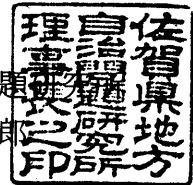 佐賀県地方
自治問題研究所
理事長之印
題
郎